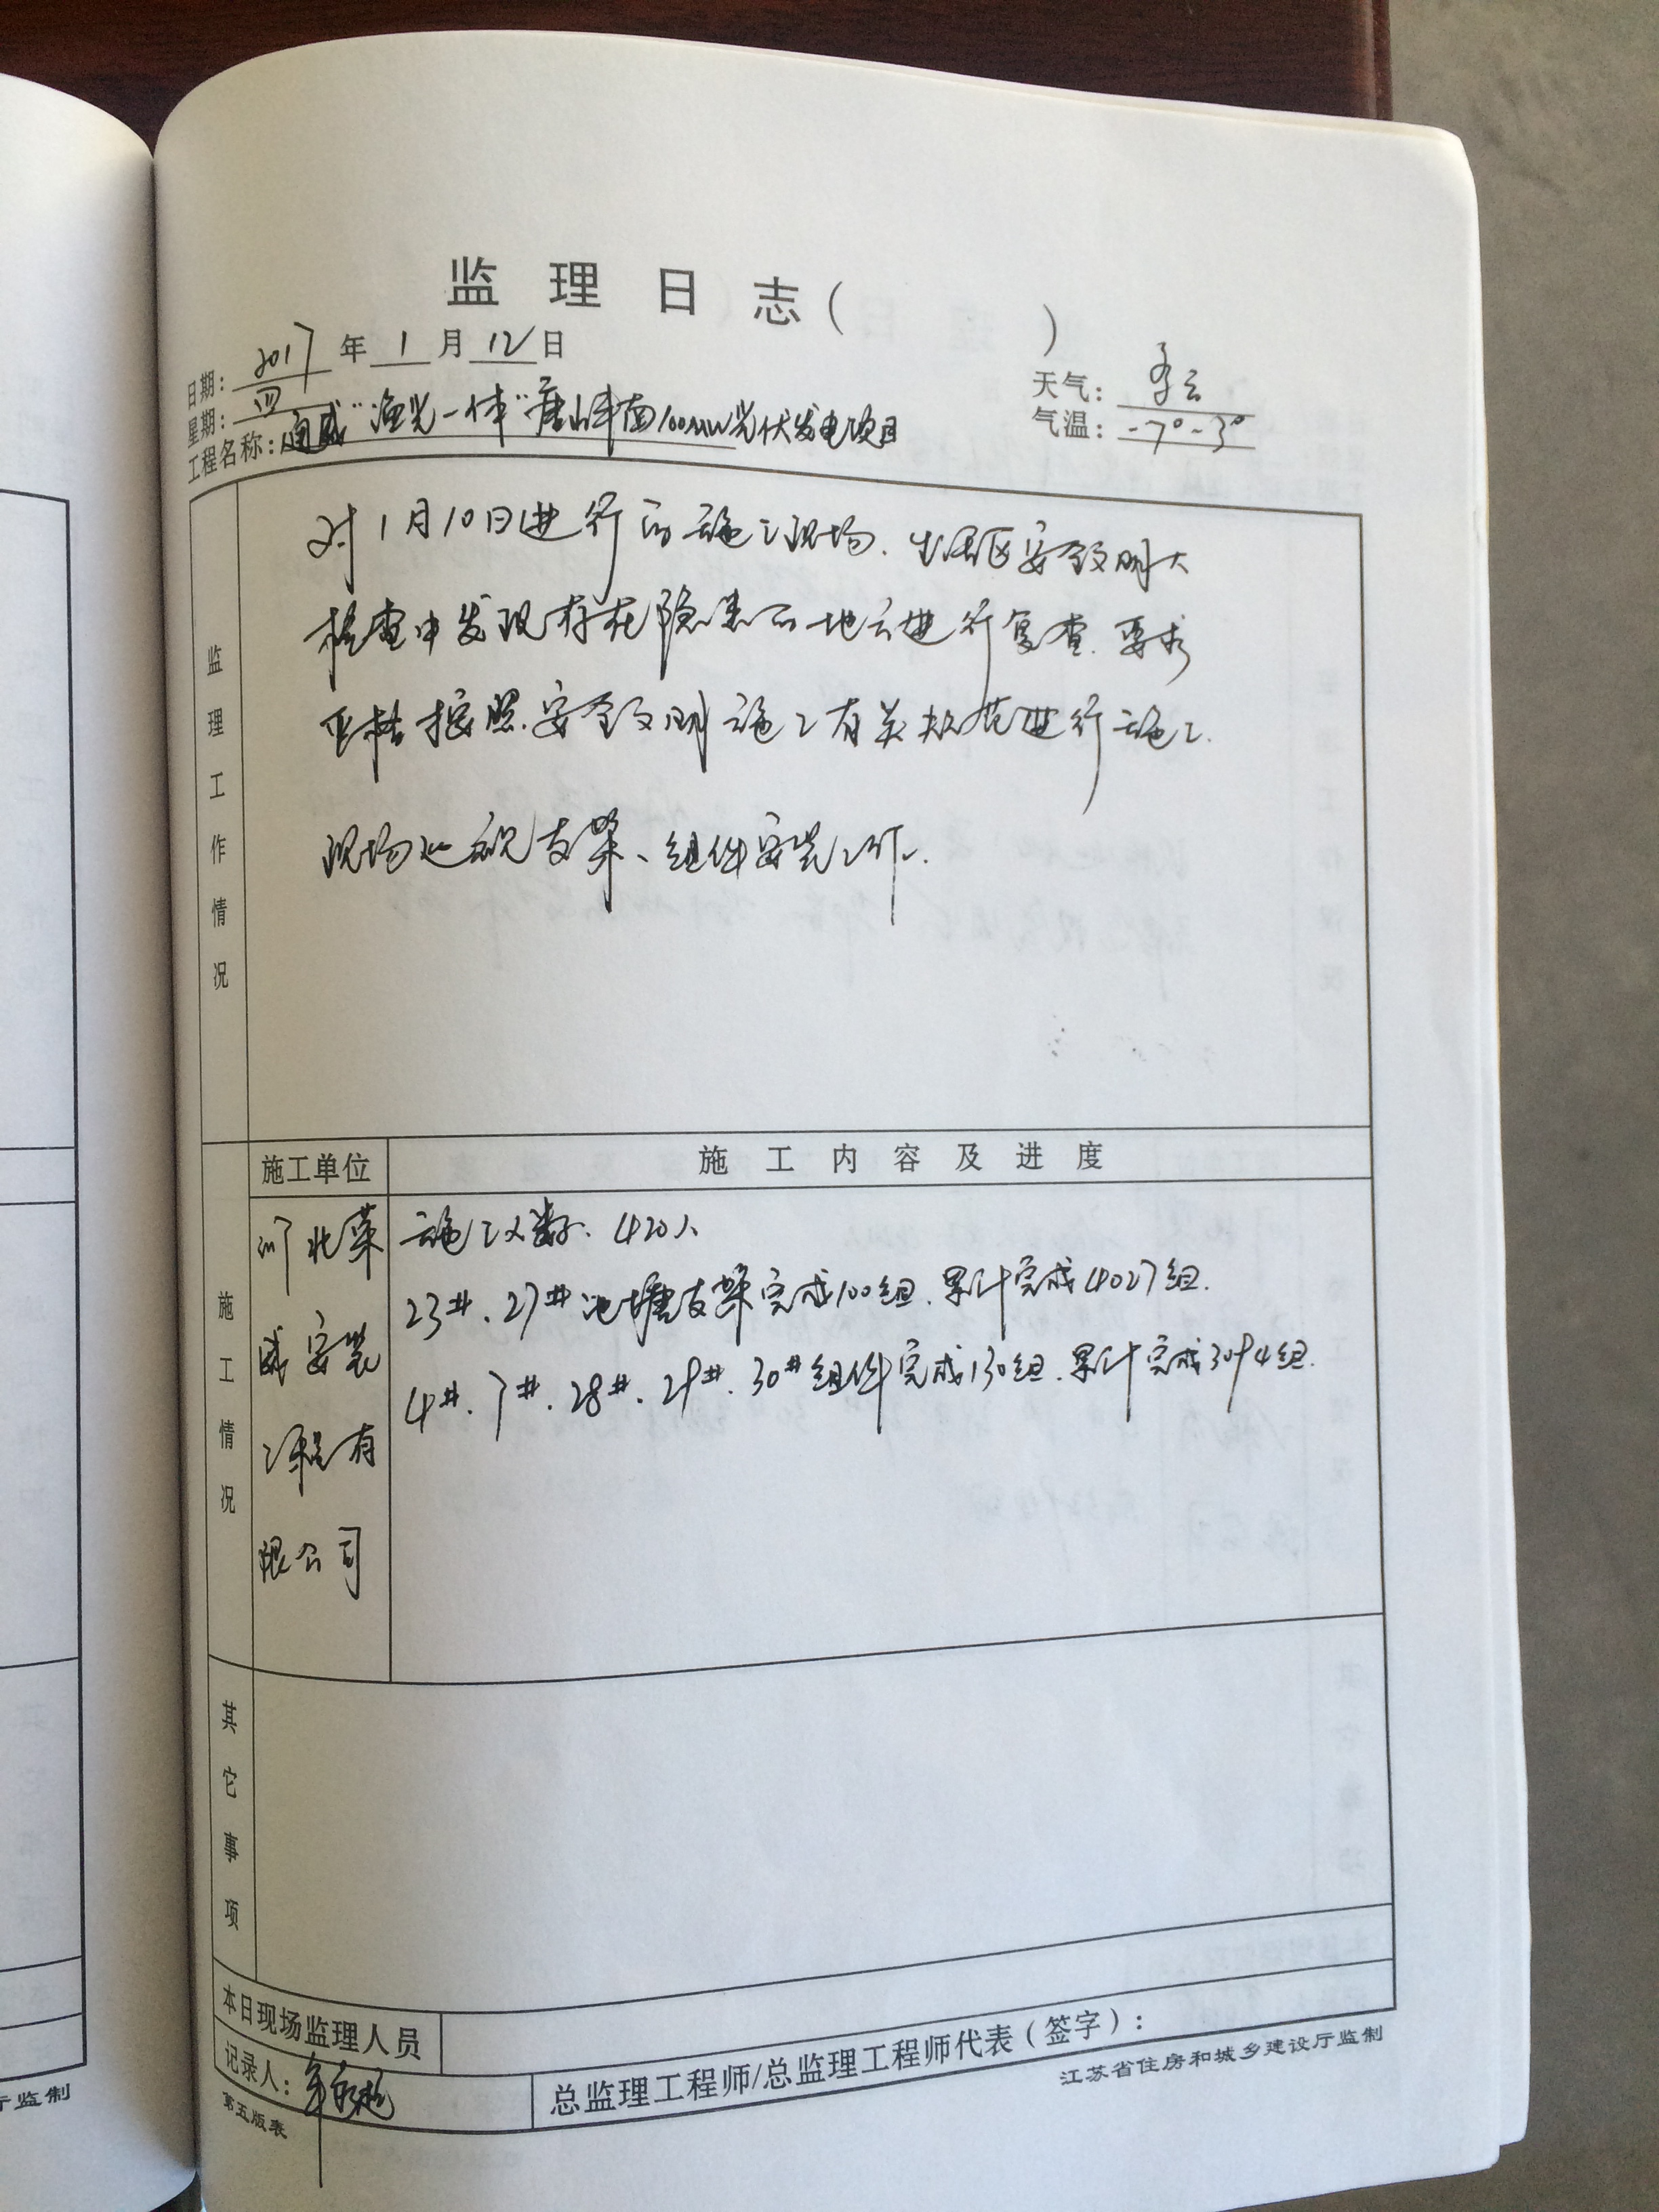 监理日志(    )
日期: 2017 年 1 月 12 日
天气: 多云
星期: 四
气温: -7°~3°
工程名称: 通威"渔光一体"唐山丰南100MW光伏发电项目
监理工作情况
对1月10日进行的施工现场、生活区安全文明大
检查中发现存在隐患的地方进行复查.要求
严格按照安全文明施工有关规范进行施工.
现场巡视支架、组件安装工作.
施工情况
施工单位
施工内容及进度
河北荣
威安装
工程有
限公司
施工人数: 420人
23#、27#池塘支架完成100组.累计完成4027组.
4#、7#、28#、29#、30#组件完成130组.累计完成3094组.
其它事项
本日现场监理人员
记录人:
总监理工程师/总监理工程师代表(签字):
第五版表
江苏省住房和城乡建设厅监制
厅监制